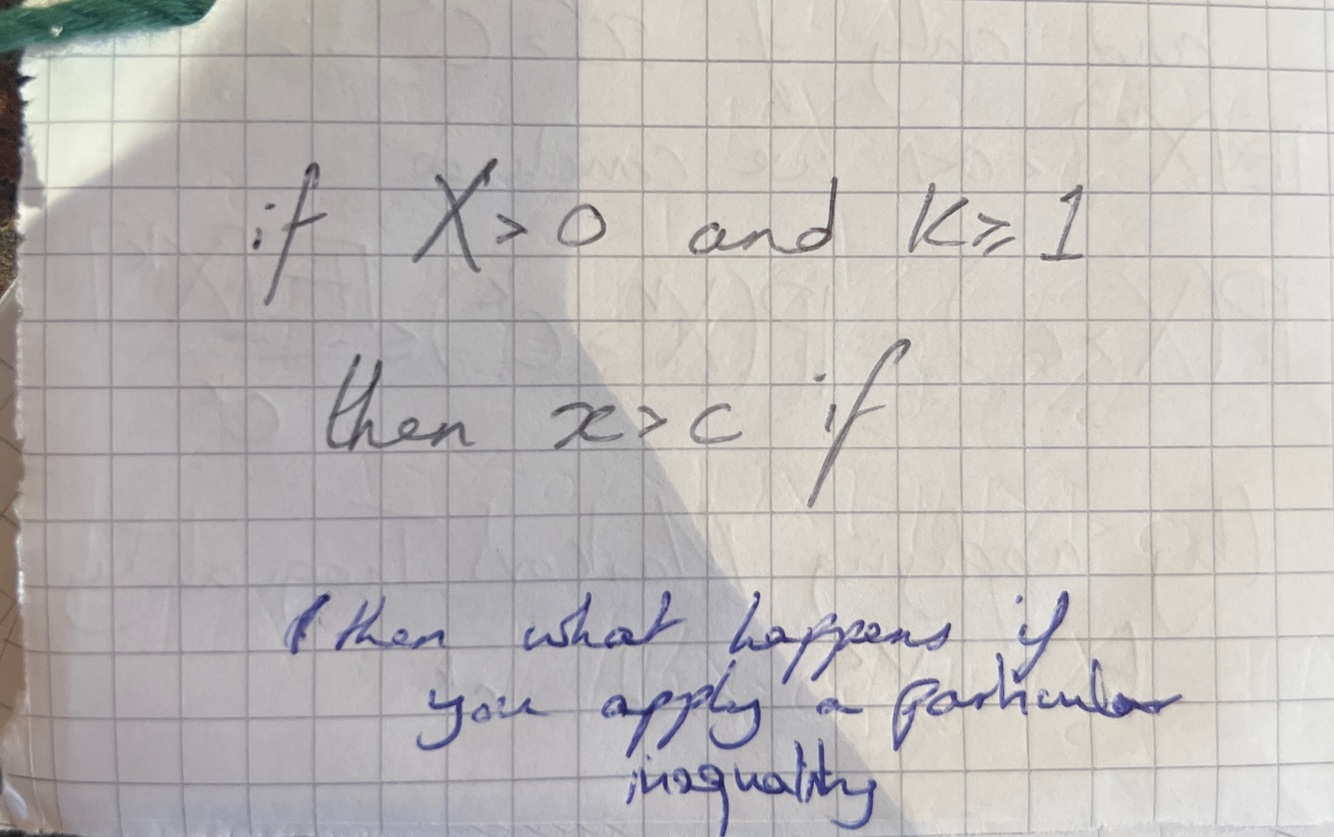 if X > 0 and K ⩾ 1
then x > c if
then what happens if
you apply a particular
inequality